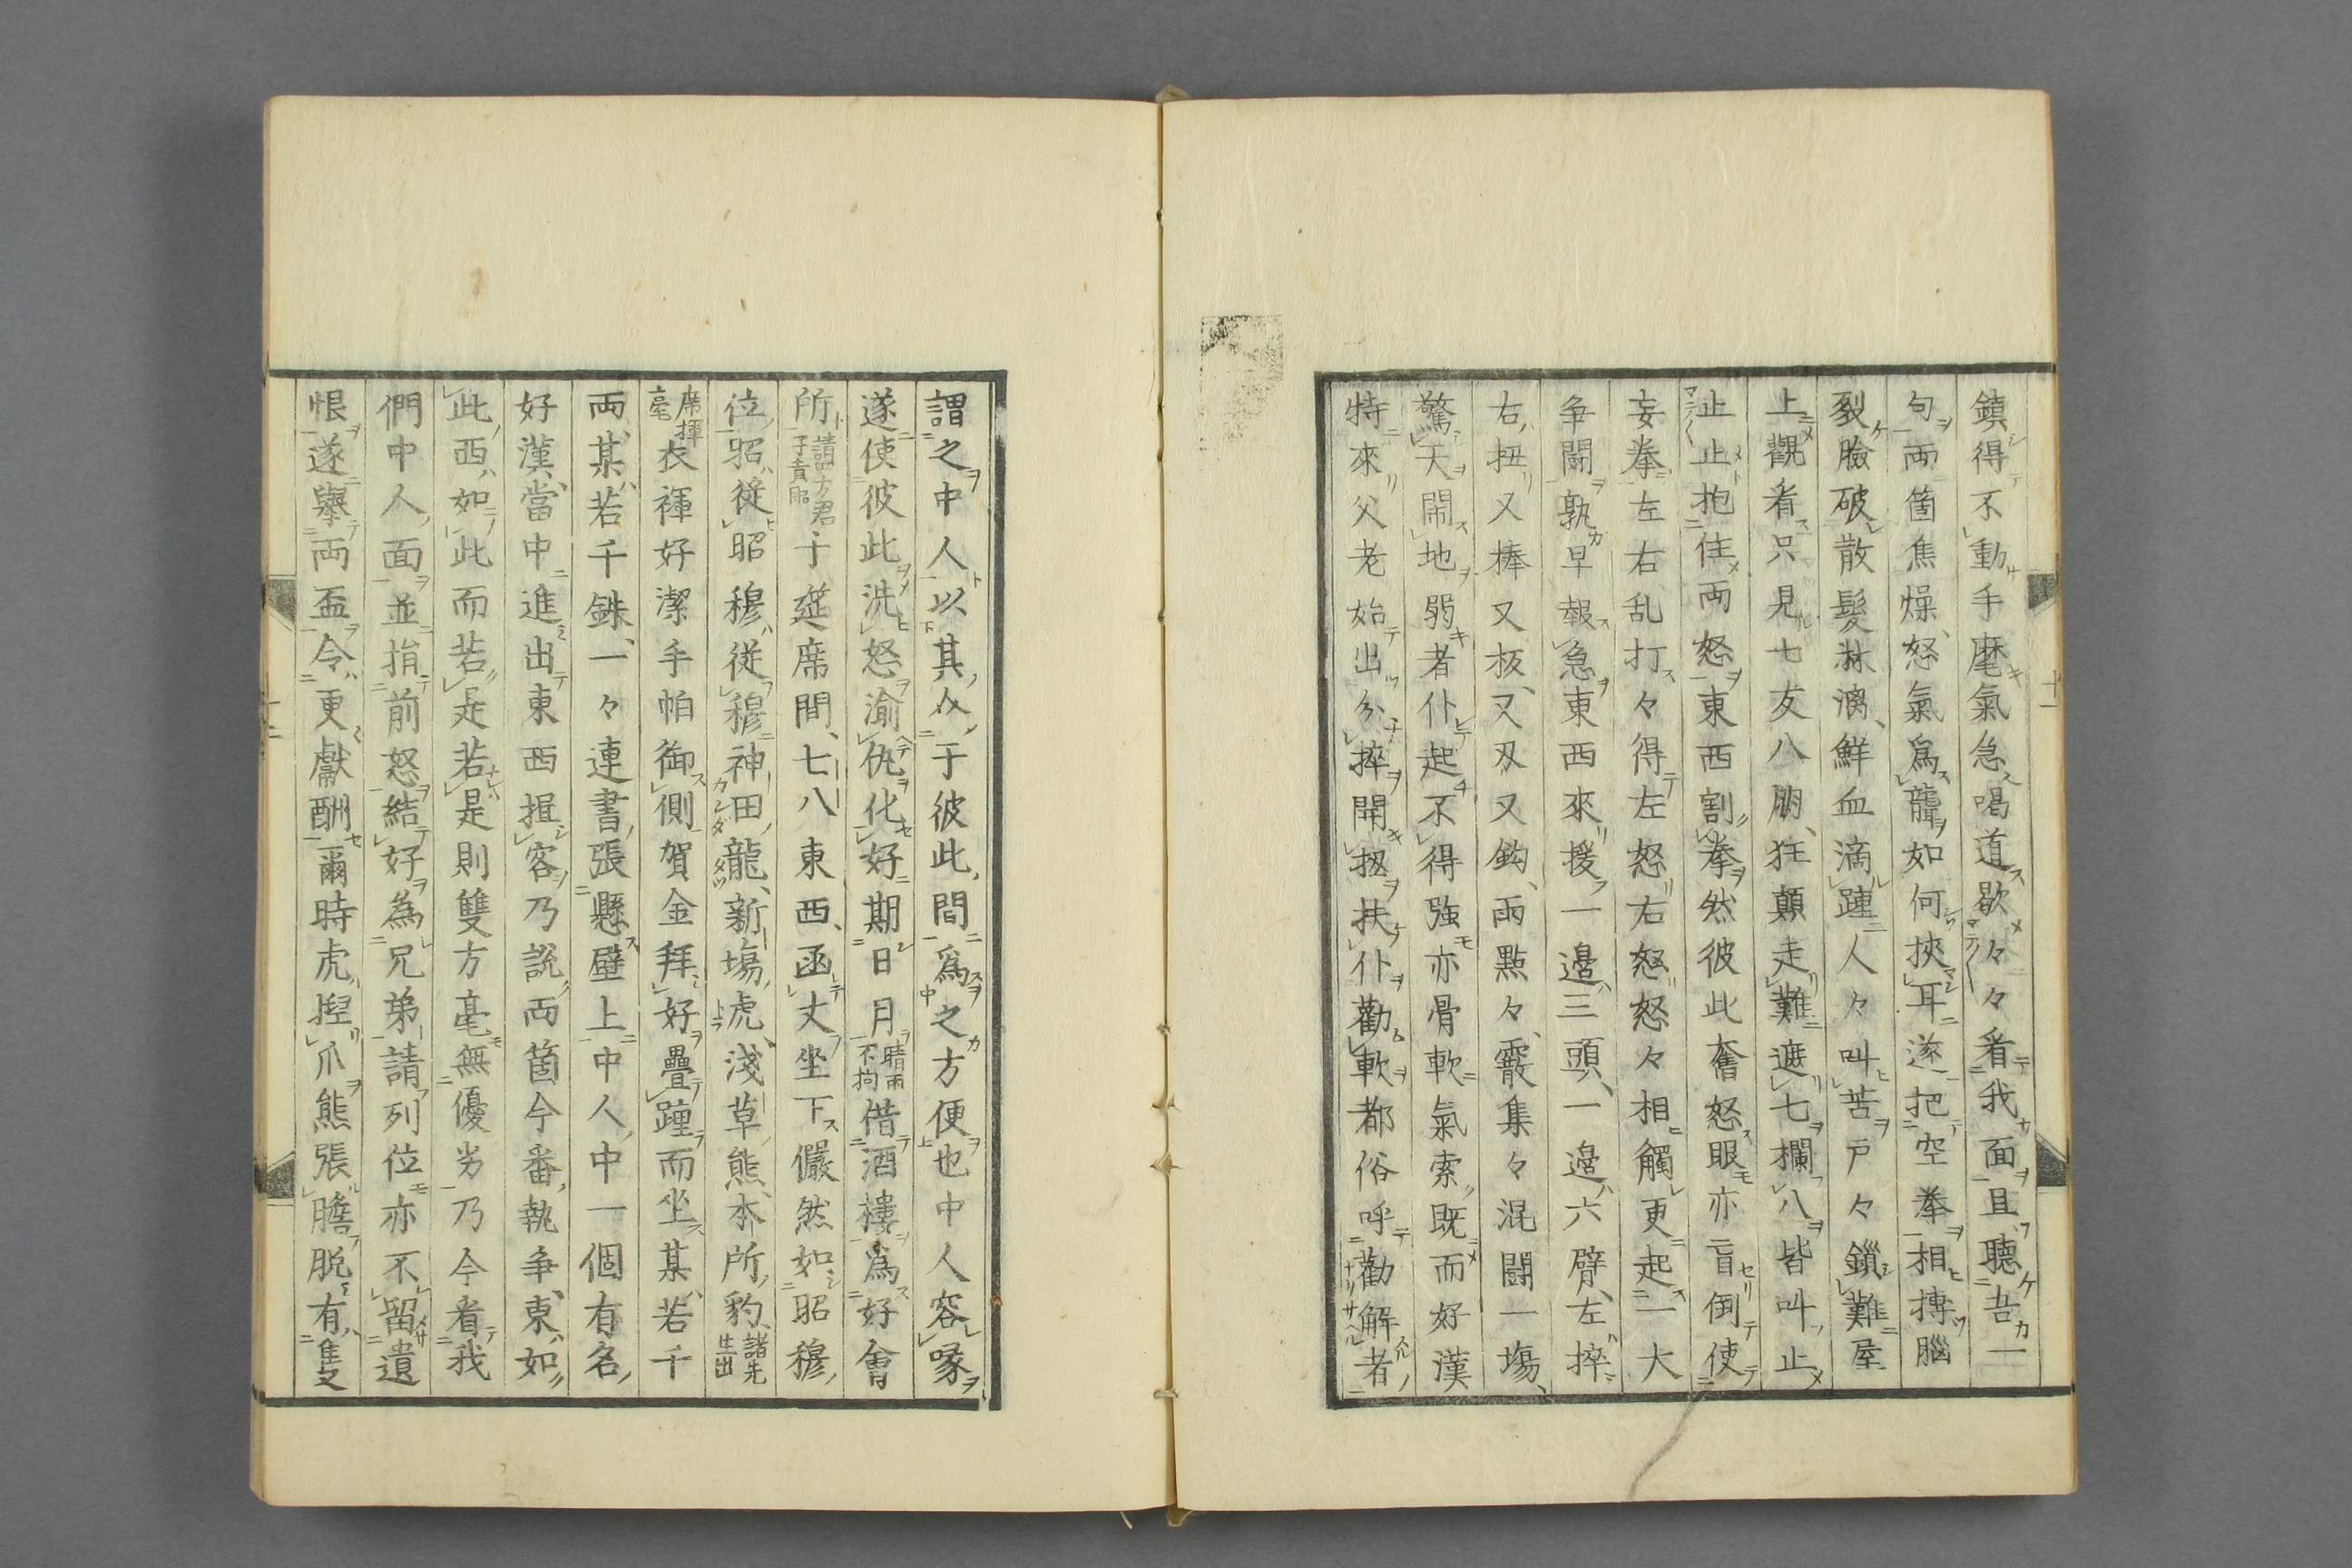 鎮得不動手麾氣急喝道歇々々看我面且聽吾一
句兩箇焦燥怒氣爲聾如何挾耳遂把空拳相摶腦
裂臉破散髮淋漓鮮血滴踵人々叫苦戸々鎖難屋
上觀看只見七友八朋狂顛走難遮七欄八皆叫止
止止抱住兩怒東西割拳然彼此奮怒眼亦盲倒使
妄拳左右乱打々得左怒右怒怒々相觸更起一大
争闘孰早報急東西來援一邉三頭一邉六臂左捽
右扭又棒又扳又刄又鈎雨點々霰集々混闘一塲
驚天閙地弱者仆起不得強亦骨軟氣索既而好漢
特來父老始出分捽開扨扶仆勸軟都俗呼勸解者
謂之中人以其人于彼此間爲之方便也中人容喙
遂使彼此洗怒渝仇化好期日月晴雨不拘借酒樓爲好會
所請四方君子賁臨于筵席間七八東西函丈坐下儼然如昭穆
位昭從昭穆從穆神田龍新塲虎淺草熊本所豹諸先生出
席揮毫衣褌好潔手帕御側賀金拜好疊踵而坐某若干
兩某若干銖一々連書張懸壁上中人中一個有名
好漢當中進出東西揖客乃説兩箇今番執争東如
此西如此而若是若是則雙方毫無優劣乃今看我
們中人面並捐前怒結好為兄弟請列位亦不留遺
恨遂擧両盃令更獻酬爾時虎揑爪熊張膽脱有隻